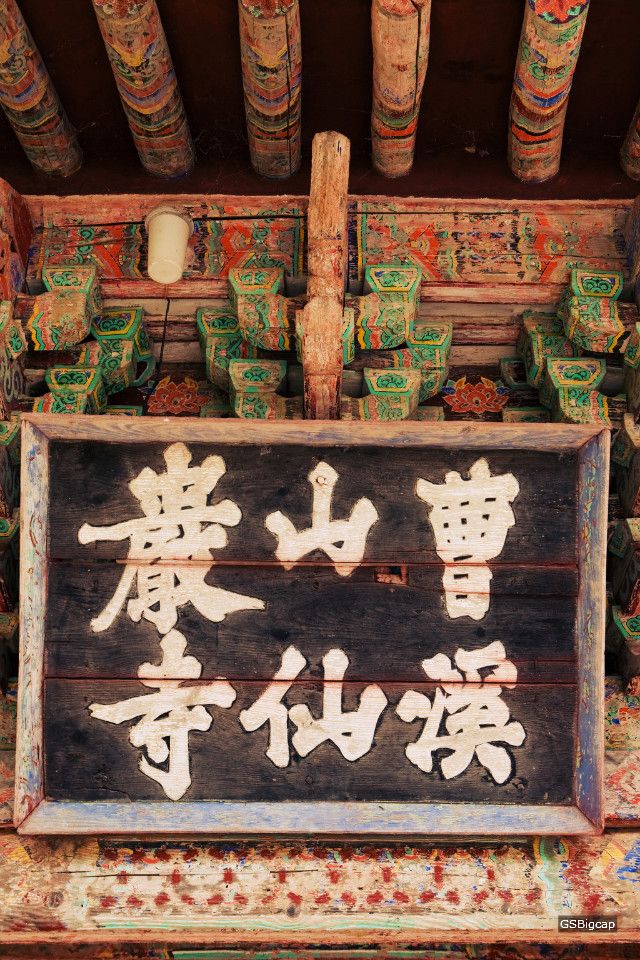 曹溪
山仙
巖寺
GSBigcap